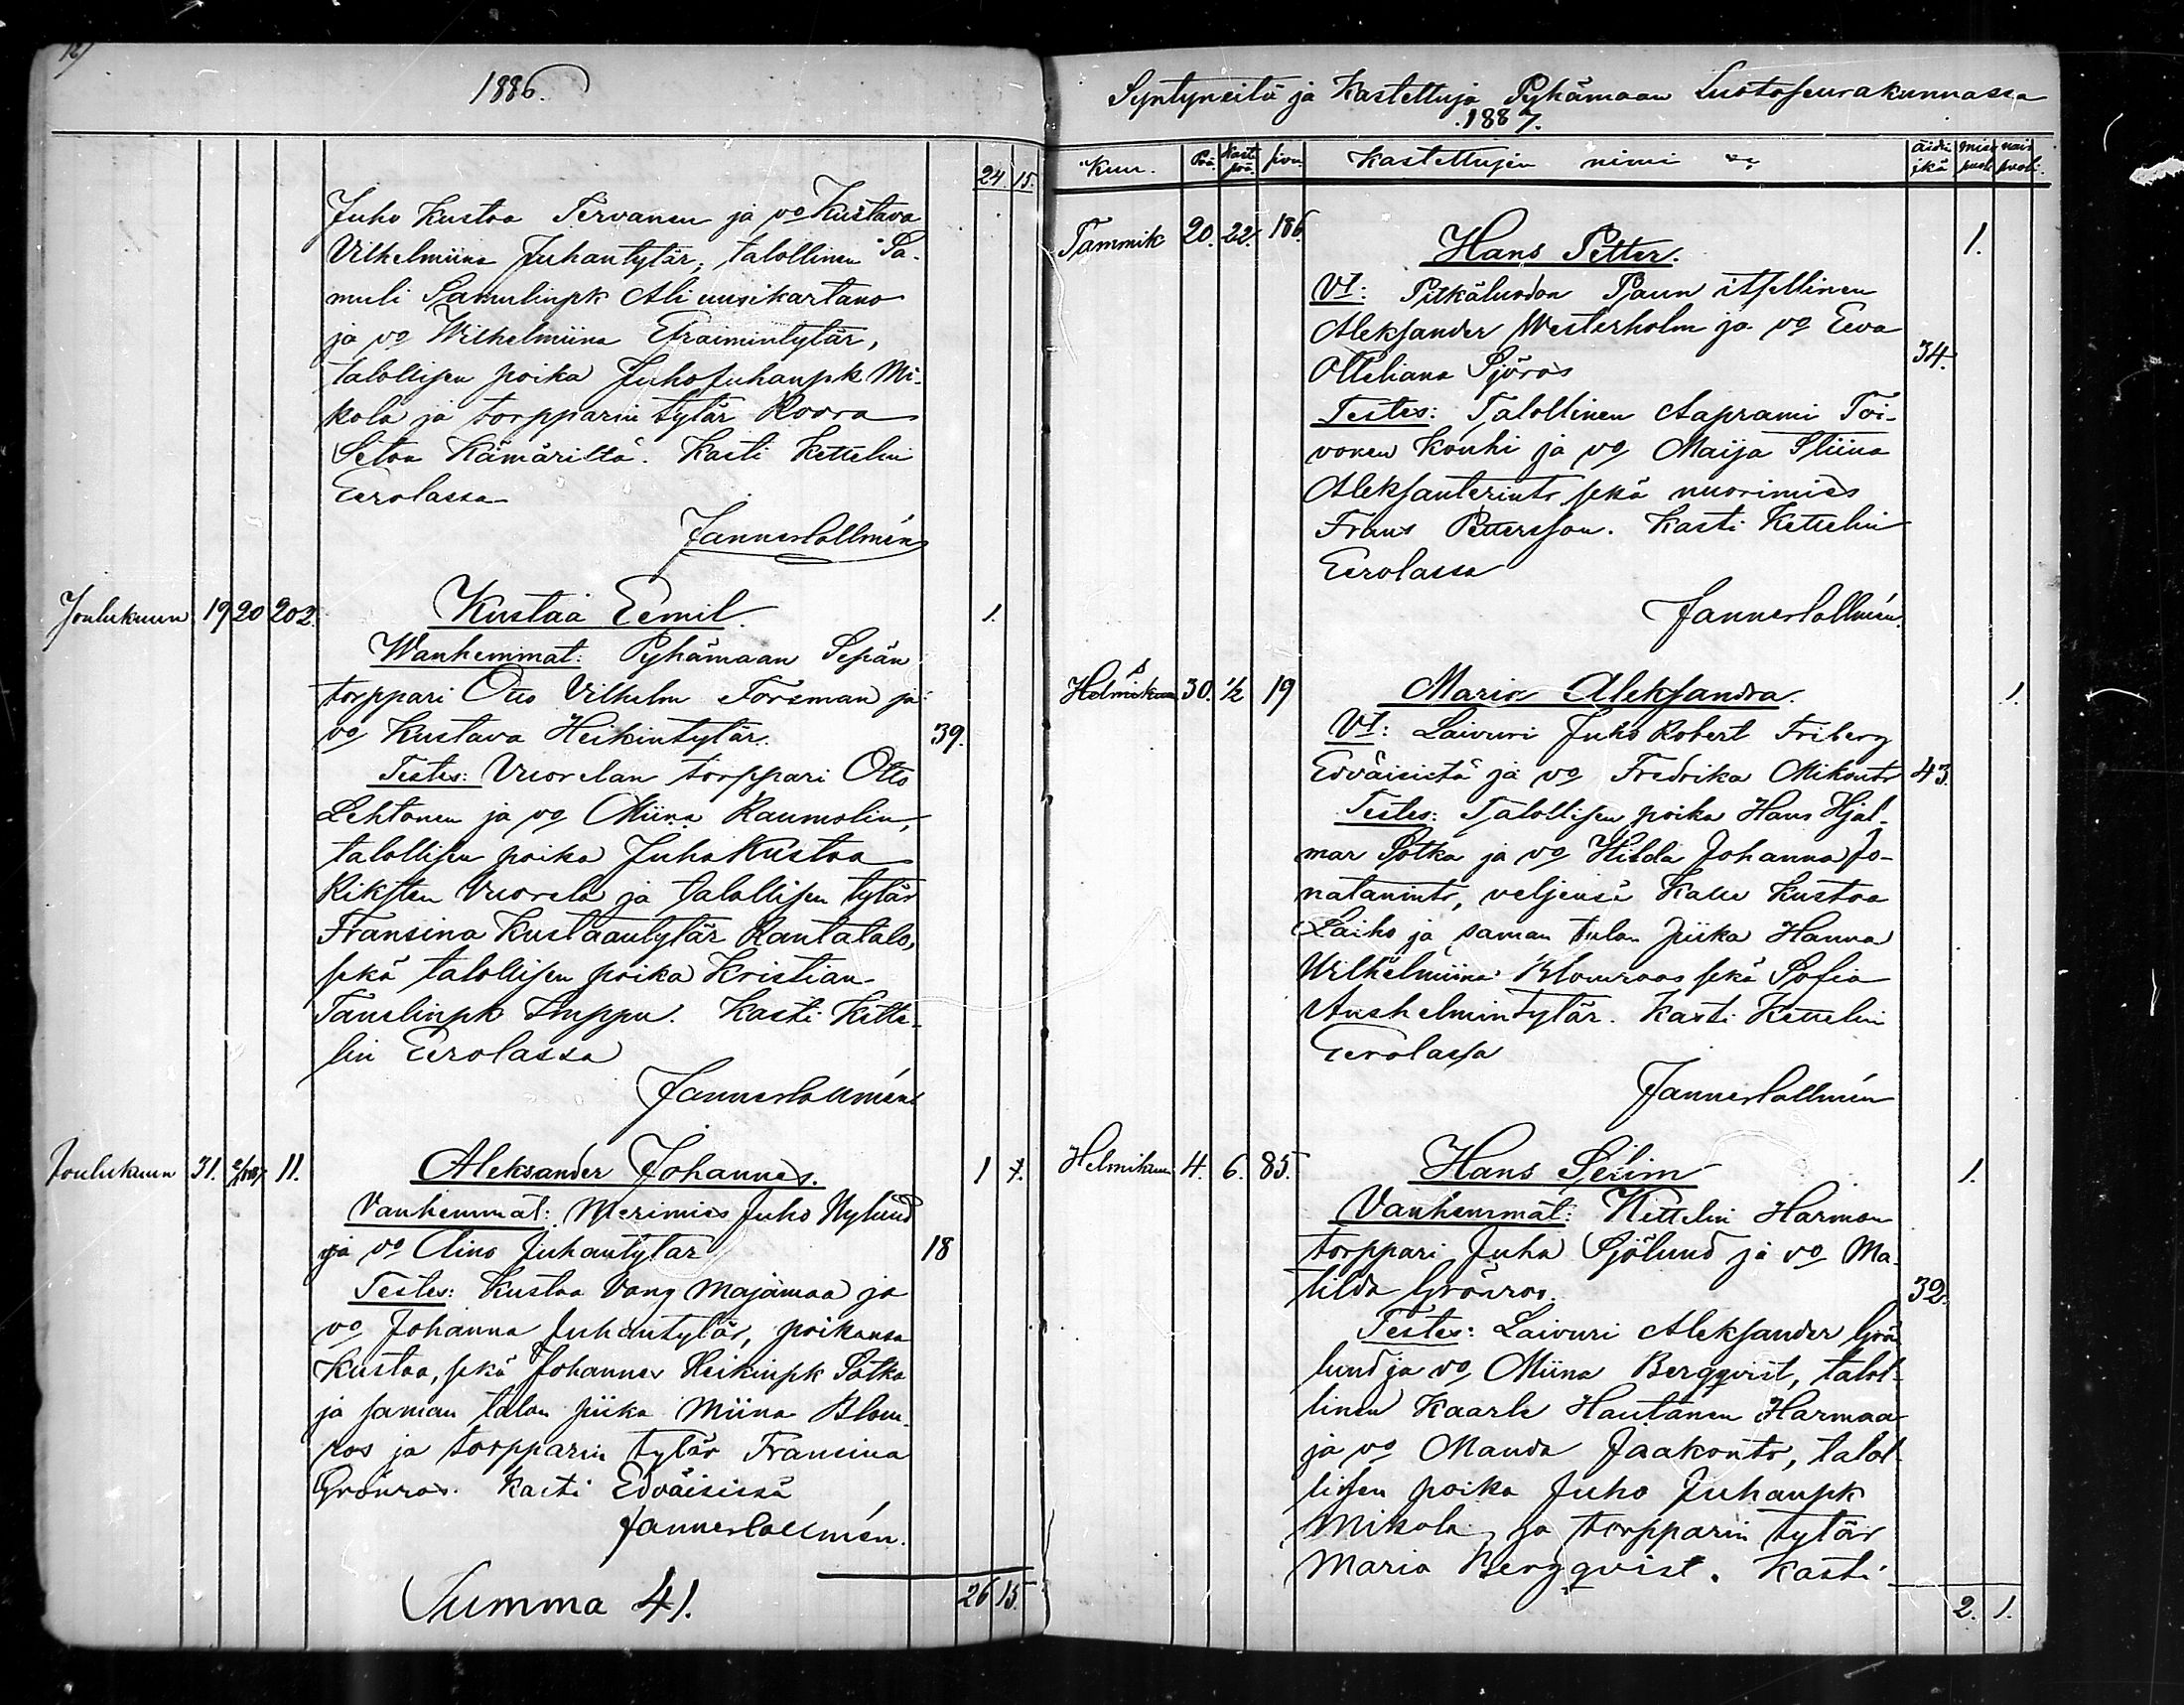 1886.
24. 15.
Juho Kustaa Tervanen ja vo Kustava
Vilhelmiina Juhantytär; talollinen Sa-
muli Samulinpk Ali uusikartano
ja vo Wilhelmiina Efraimintytär,
talollisen poika Juho Juhanpk Mi-
kola ja torpparin tytär Roosa
Seton Kämäriltä. Kasti Kettelin
Eerolassa
Janne Hollmén
Joulukuun 19 20 202. Kustaa Eemil. 1.
Wanhemmat: Pyhämaan Sepän
torppari Otto Vilhelm Forsman ja
vo Kustava Heikintytär. 39.
Testes: Vuorelan torppari Otto
Lehtonen ja vo Miina Raumolin,
talollisen poika Juha Kustaa
Riksten Vuorela ja talollisen tytär
Fransina Kustaantytär Rantatalo,
sekä talollisen poika Kristian
Tanelinpk Simppu. Kasti Kette-
lin Eerolassa
Janne Hollmén
Joulukuun 31. 2/1 1887 11. Aleksander Johannes. 1
Vanhemmat: Merimies Juho Nylund
ja vo Aino Juhantytär 18
Testes: Kustaa Vang Majamaa ja
vo Johanna Juhantytär, poikansa
Kustaa, sekä Johannes Heikinpk Sotka
ja saman talon piika Miina Blom-
ros ja torpparin tytär Fransina
Grönros. Kasti Edväisissä
Janne Hollmén.
Summa 41. 26 15.
Syntyneitä ja Kastettuja Pyhämaan Luotoseurakunnassa
1887.
Kuu. Pää. Kast. pää. sivu Kastettujen nimi äidin ikä mies puoli nais puoli.
Tammik 20. 22. 186. Hans Petter. 1.
Vt: Pitkäluodon Paun itsellinen
Aleksander Westerholm ja vo Eeva
Otteliana Sjöros 34.
Testes: Talollinen Aaprami Toi-
vonen Kouhi ja vo Maija Stiina
Aleksanterintr sekä nuorimies
Frans Pettersson. Kasti Kettelin
Eerolassa
Janne Hollmén.
Helmikuu 30. 1/2 19 Maria Aleksandra. 1.
Vt: Laivuri Juho Robert Friberg
Edväisistä ja vo Fredrika Mikontr 43.
Testes: Talollisen poika Hans Hjal-
mar Sotka ja vo Hilda Johanna Jo-
natanintr, veljensä Kalle Kustaa
Laiho ja saman talon piika Hanna
Wilhelmiina Blomroos sekä Sofia
Anshelmintytär. Kasti Kettelin
Eerolassa
Janne Hollmén
Helmikuu 4. 6. 85. Hans Selim 1.
Vanhemmat: Kettelin Harmon
torppari Juha Sjölund ja vo Ma-
tilda Grönros. 32.
Testes: Laivuri Aleksander Grön
lund ja vo Miina Bergqvist, talol-
linen Kaarle Hautanen Harmaa
ja vo Manda Jaakontr, talol-
lisen poika Juho Juhanpk
Mikola, ja torpparin tytär
Maria Bergqvist. Kasti
2. 1.